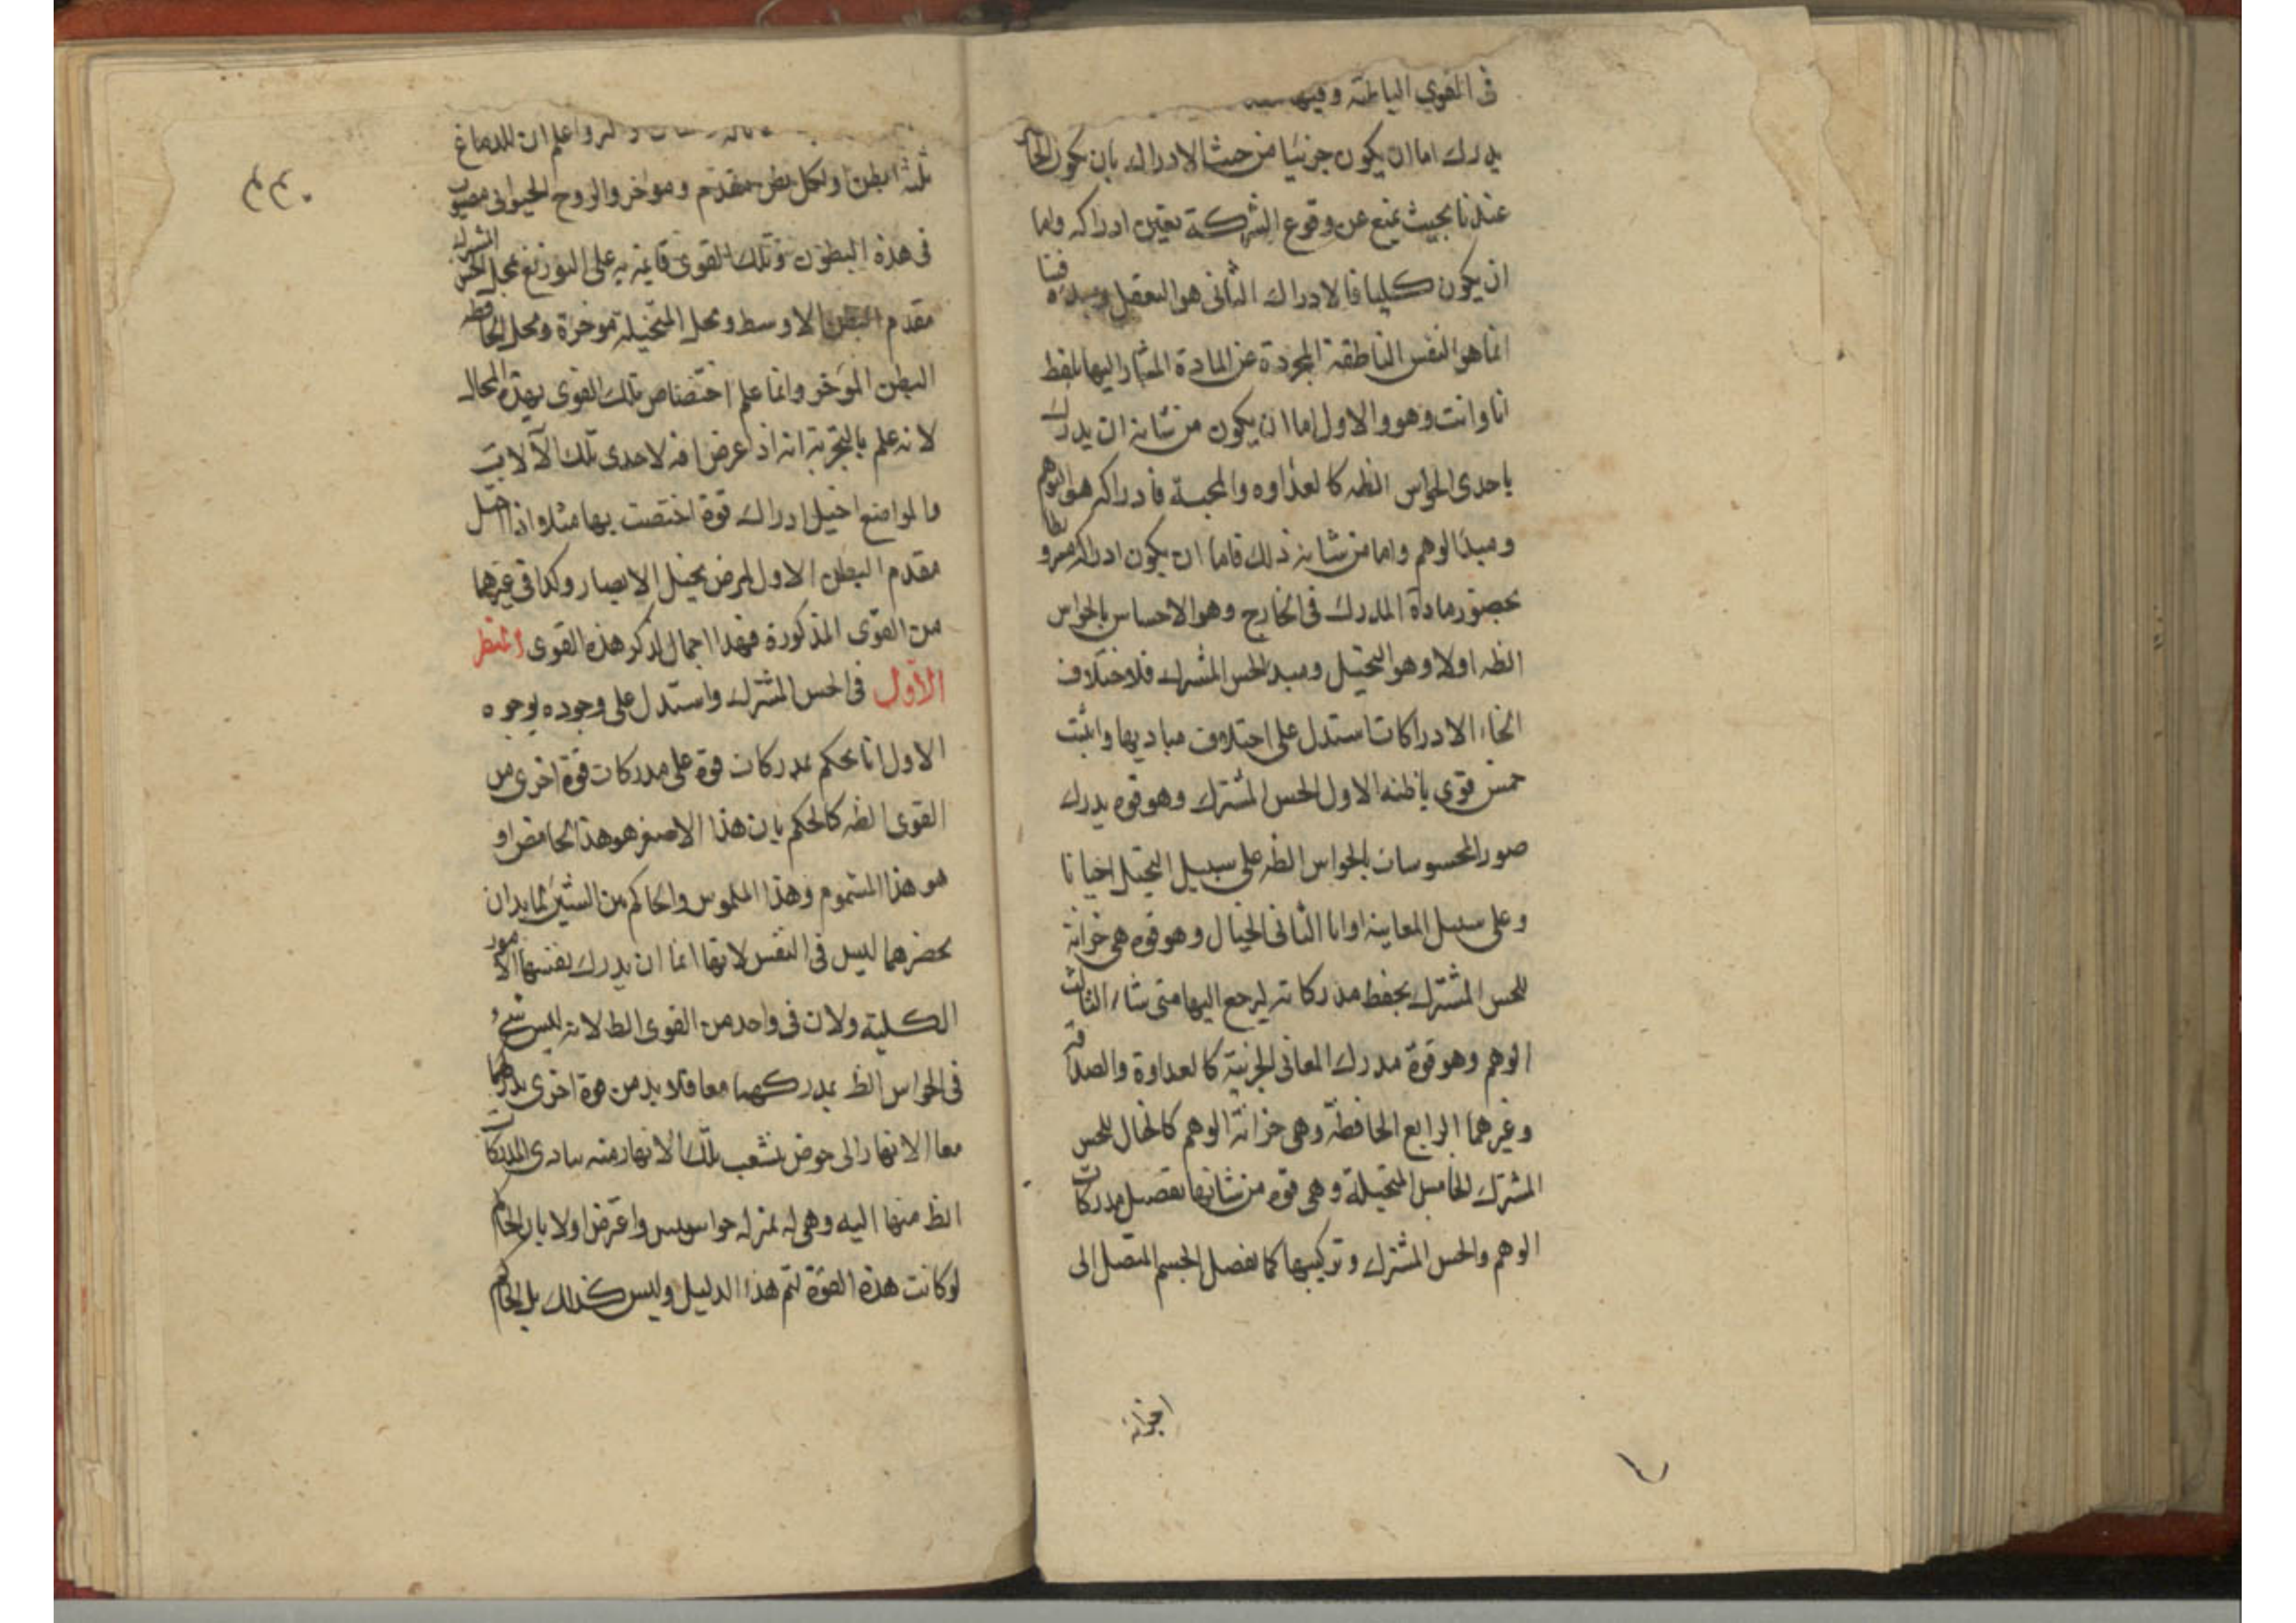 فى القوى الباطنة وفيها
يدرك اما ان يكون جزئيا من حيث الادراك بان يكون الحال
عندنا بحيث يمنع عن وقوع الشركة بعين ادراكه واما
ان يكون كليا فالادراك الثانى هو التعقل ومبدءه فينا
انما هو النفس الناطقة المجردة عن المادة المشار اليها بلفظ
انا وانت وهو والاول اما ان يكون من شانه ان يدرك
باحدى الحواس الظه كالعداوه والمحبة فادراكه هو التوهم
ومبدا الوهم واما من شانه ذلك فاما ان يكون ادراكه
بحضور مادة المدرك فى الخارج وهو الاحساس بالحواس
الظه اولا وهو التخيل ومبدا الحس المشترك فلاختلاف
انحاء الادراكات استدل على اختلاف مباديها واثبت
خمس قوى باطنه الاول الحس المشترك وهو قوه يدرك
صور المحسوسات بالحواس الظه على سبيل التخيل احيانا
وعلى سبيل المعاينه اوانا الثانى الخيال وهو قوه هى خزانة
للحس المشترك يحفظ مدركاته ليرجع اليها متى شاء الثالث
الوهم وهو قوة مدرك المعانى الجزئية كالعداوة والصداقة
وغيرهما الرابع الحافظة وهى خزانة الوهم كالخال للحس
المشترك الخامس المتخيلة وهى قوه من شانها تفصيل مدركات
الوهم والحس المشترك وتركيبها كما تفصل الجسم المتصل الى
اجزائه
٢٣٠
واعلم ان للدماغ
ثلثه ابطن ولكل بطن مقدم وموخر والروح الحيوانى مصبوب
فى هذه البطون وتلك القوى قايمة به على التوزيع فمحل الحس المشترك
مقدم البطن الاوسط ومحل المتخيلة موخرة ومحل الحافظه
البطن الموخر وانما علم اختصاص تلك القوى بهذه المحال
لانه علم بالتجربة انه اذا عرض افه لاحدى تلك الآلات
والمواضع اختل ادراك قوة اختصت بها مثلا اذا اختل
مقدم البطن الاول لمرض يختل الابصار وكذا فى غيرهما
من القوى المذكورة فهذا اجمال لذكر هذه القوى النظر
الاول فى الحس المشترك واستدل على وجوده بوجوه
الاول انا نحكم بمدركات قوة على مدركات قوة اخرى من
القوى الظه كالحكم بان هذا الاصفر هو هذا الحامض او
هو هذا المشموم وهذا الملموس والحاكم بين الشيئين لابد ان
يحضرهما ليس فى النفس لانها انما ان يدرك بنفسها الامور
الكلية ولان فى واحد من القوى الظ لانه ليس شىء
فى الحواس الظ يدركهما معا فلا بد من قوة اخرى يدركهما
معا الانهار الى حوض تشعب تلك الانهار منه المدركات
الظ منها اليه وهى له بمنزله جواسيس واعترض اولا بان الحاكم
لو كانت هذه القوة لتم هذا الدليل وليس كذلك بل الحاكم